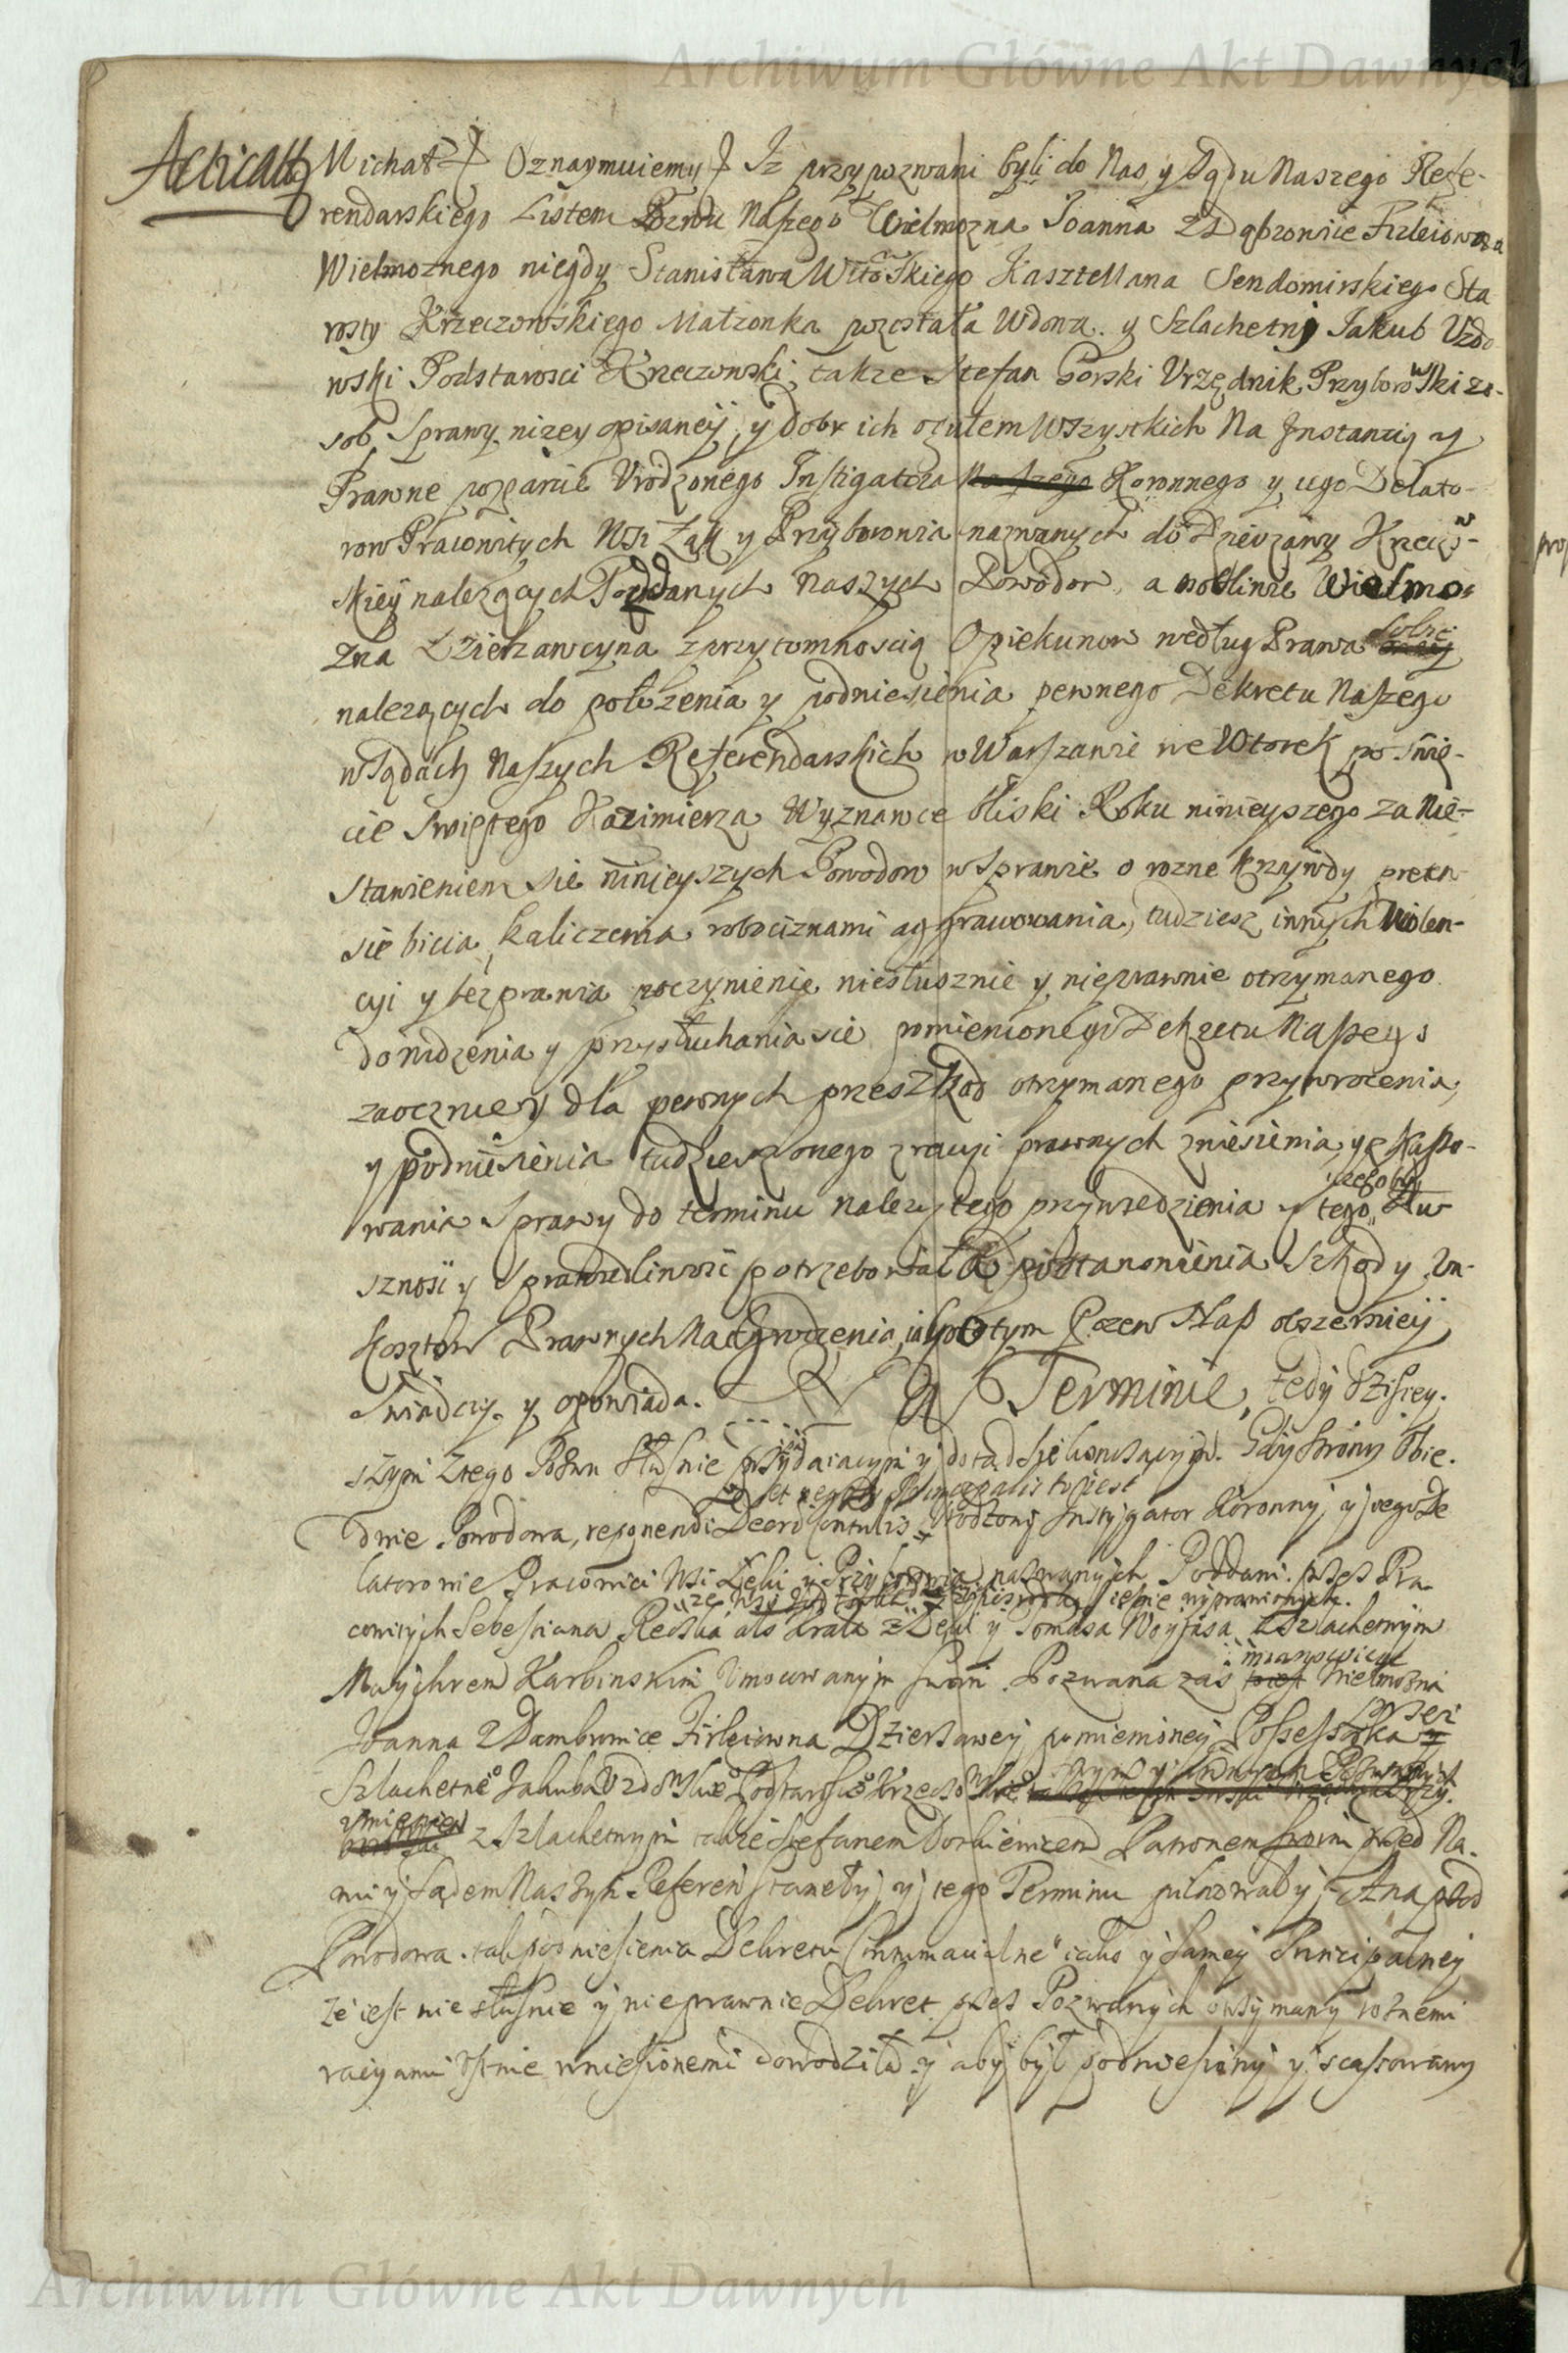 Archiwum Główne Akt Dawnych
Michał Oznaymuiemy Iz przypozwani byli do Nas y Sądu Naszego Refe-
rendarskiego Listem Pozwu Naszego Wielmozna Joanna z Dąbrowice Firleiowna
Wielmoznego niegdy Stanisława Witowskiego Kasztellana Sendomirskiego Sta
rosty Krzeczowskiego Małzonka pozostała Wdowa y Szlachetny Jakub Uzdo
wski Podstarosci Krzeczowski, takze Stefan Gorski Urzędnik Przyborowski z o-
sob, Sprawy nizey opisaneij, y dobr ich ogułem wszystkich Na Instantią y
Prawne poparcie Urodzonego Instigatora Naszego Koronnego y iego Delato-
row Pracowitych Wsi Łąk y Przyborowia nazwanych do Dzierzawy Krzeczow-
skieÿ nalezących Poddanych Naszych Powodow, a osobliwie Wielmo-
zna Dzierzawczyna z przytomnoscią Opiekunow według Prawa sobie
nalezących do połozenia y podniesienia pewnego Dekretu Naszego
w Sądach Naszych Referendarskich w Warszawie we Wtorek po Swię-
cie Swiętego Kazimierza Wyznawce bliski Roku ninieyszego za Nie-
stawieniem sie ninieyszych Powodow w Sprawie o rozne krzywdy preten
sie bicia, kaliczenia robociznami aggrawowania, tudziesz innych Violen-
cyi y bezprawia poczynienie niesłusznie y nieprawnie otrzymanego
do widzenia y przysłuchania sie pomienionego Dekretu Naszego
zaocznie y dla pewnych przeszkod otrzymanego przywrocenia,
y podniesienia tudziesz onego z racyi prawnych zniesienia, y skasso-
wania Sprawy do terminu nalezytego przywiedzienia y tego czegoby Słu-
sznosć y Sprawiedliwosć potrzebowała postanowienia Szkody y
kosztow Prawnych Nadgrodzenia, iako o tym Pozew Nasz obszerniey
Swiadczy y opowiada. Na Terminie, tedy dzisiey-
szym z tego Pozwu słusnie przydaiącym y dotąd sie Gdy Strony Obie-
dwie Powodowa, reponendi Decreti Contulis Urodzony Instygator Koronny, y iego De
latorowie Pracowici Wsi Łęki y Przyborowia nazwanych Poddani przes Pra
cowitych Sebestiana Krala z Łęki y Tomasa Woytasa z Szlachetnym
Maychrem Karbinskim Umocowanym swoim Pozwana zas mianowicie Wielmozna
Joanna z Dambrowice Firleiowna Dzierzawey pomienioney Possessorka
Szlachetne Jakuba Uzdowskie Podstarosciº
z Szlachetnym takze Stefanem Patronem swoim przed Na-
mi y Sądem Naszym Referen stanęły y tego Terminu pilnowały. A naprzod
Powodowa tak podniesienia Dekretu Contumacialneº iako y samey Principalney
ze iest nie słusnie y nieprawnie Dekret przes Pozwanych otrzymany roznemi
racyami ustnie wniesionemi dowodziła y aby był podniesiony y scassowany
Archiwum Główne Akt Dawnych